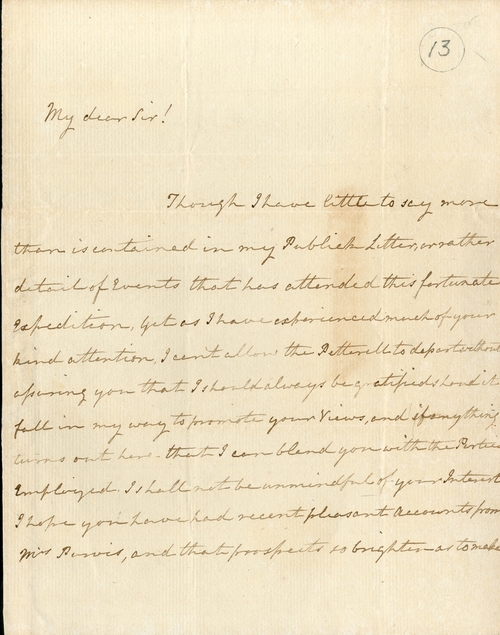 13
My dear Sir!
Though I have little to say more
than is contained in my Publick Letter, or rather
detail of Events that has attended this fortunate
Expedition, yet as I have experienced much of your
kind attention, I can't allow the Petterell to depart without
assuring you that I should always be gratified should it
fall in my way to promote your Views, and if anything
turns out here - that I can blend you with the Parties
Employed. I shall not be unmindful of your Interest
I hope you have had recent pleasant Accounts from
Mrs Purvis, and that prospects so brighten as to make